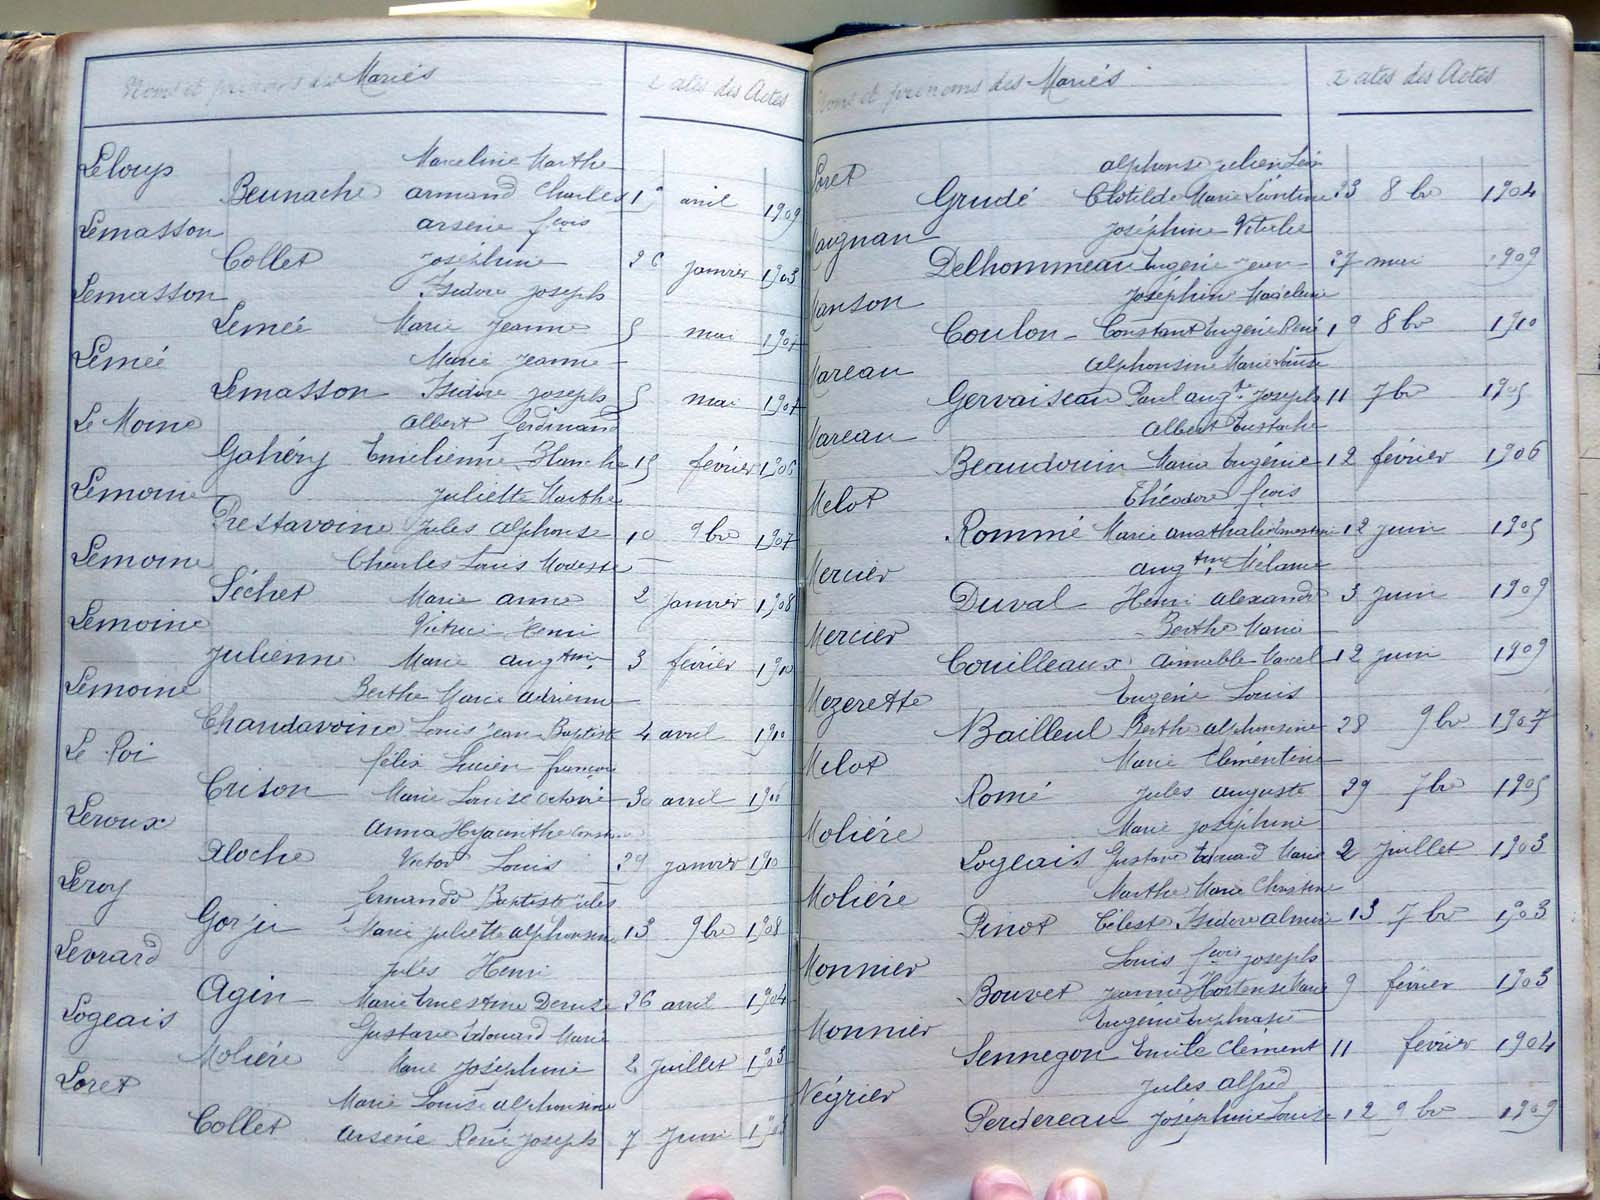 Noms et prénoms des Mariés Dates des Actes
Leloup Marceline Marthe
Beunache armand Charles 1er avril 1909
Lemasson arsène fçois
Collet Joséphine 26 janvier 1903
Lemasson Isidore Joseph
Lemée Marie Jeanne 5 mai 1907
Lemée Marie Jeanne
Lemasson Isidore Joseph 5 mai 1907
Le Moine albert ferdinand
Gahéry Emilienne Blanche 15 février 1906
Lemoine Juliette Marthe
Prestavoine Jules alphonse 10 9bre 1907
Lemoine Charles Louis Modeste
Séchet Marie anne 2 janvier 1908
Lemoine Victor Henri
Julienne Marie augtine 3 février 1910
Lemoine Berthe Marie adrienne
Chandavoine Louis Jean Baptiste 4 avril 1910
Le Poi félix Lucien françois
Crison Marie Louise octavie 30 avril 1906
Leroux anna Hyacinthe
Aloche Victor Louis 29 janvier 1910
Leroy fernando Baptiste Jules
Gorju Marie Juliette alphonsine 13 9bre 1908
Levrard Jules Henri
Agin Marie Ernestine Denise 26 avril 1904
Logeais Gustave Edouard Marie
Moliére Marie Joséphine 2 Juillet 1903
Loret Marie Louise alphonsine
Collet arsène René Joseph 7 Juin
Noms et prénoms des Mariés Dates des Actes
Loret alphonse Julien Léon
Grudé Clotilde Marie Léontine 23 8bre 1904
Maignan Joséphine Vitaline
Delhommeau Eugène Jean 27 mai 1909
Manson Joséphine Madeleine
Coulon Constant Eugène René 1er 8bre 1910
Mareau alphonsine Marie Louise
Gervaiseau Paul augte Joseph 11 7bre 1905
Mareau albert Eustache
Beaudouin Marie Eugénie 12 février 1906
Melot Théodore fçois
Rommé Marie anathalie Ernestine 12 Juin 1905
Mercier augtine Mélanie
Duval Henri alexandre 3 Juin 1909
Mercier Berthe Marie
Couilleaux aimable Marcel 12 Juin 1909
Mezerette Eugène Louis
Bailleul Berthe alphonsine 28 9bre 1907
Melot Marie Clémentine
Romé Jules auguste 29 7bre 1905
Moliére Marie Joséphine
Logeais Gustave Edouard Marie 2 Juillet 1903
Moliére Marthe Marie Christine
Pinot Céleste Isidore almire 13 7bre 1903
Monnier Louis fçois Joseph
Bouvet Jeanne Hortense Marie 9 février 1903
Monnier Eugénie Euphrasie
Sennegon Emile Clément 11 février 1904
Négrier Jules alfred
Perdereau Joséphine Louise 12 9bre 1909